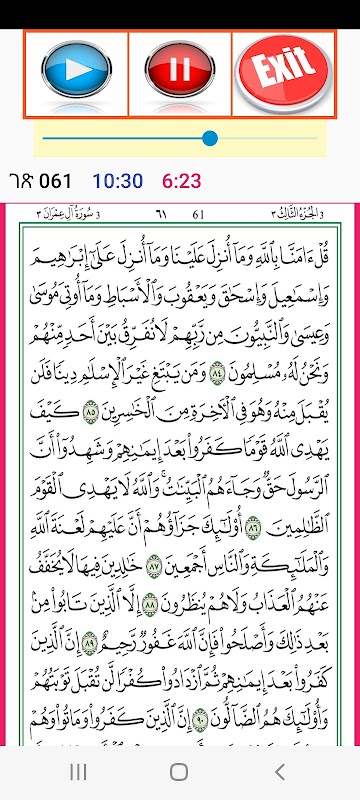 Exit
ገጽ 061 10:30 6:23
3 سُورَةُ آلِ عِمْرَانَ ٣ ٦١ 61 3 الجُزْءُ الثَّالِثُ ٣
قُلْ ءَامَنَّا بِٱللَّهِ وَمَآ أُنزِلَ عَلَيْنَا وَمَآ أُنزِلَ عَلَىٰٓ إِبْرَٰهِيمَ
وَإِسْمَٰعِيلَ وَإِسْحَٰقَ وَيَعْقُوبَ وَٱلْأَسْبَاطِ وَمَآ أُوتِىَ مُوسَىٰ
وَعِيسَىٰ وَٱلنَّبِيُّونَ مِن رَّبِّهِمْ لَا نُفَرِّقُ بَيْنَ أَحَدٍ مِّنْهُمْ
وَنَحْنُ لَهُۥ مُسْلِمُونَ ٨٤ وَمَن يَبْتَغِ غَيْرَ ٱلْإِسْلَٰمِ دِينًا فَلَن
يُقْبَلَ مِنْهُ وَهُوَ فِى ٱلْءَاخِرَةِ مِنَ ٱلْخَٰسِرِينَ ٨٥ كَيْفَ
يَهْدِى ٱللَّهُ قَوْمًا كَفَرُوا۟ بَعْدَ إِيمَٰنِهِمْ وَشَهِدُوٓا۟ أَنَّ
ٱلرَّسُولَ حَقٌّ وَجَآءَهُمُ ٱلْبَيِّنَٰتُ ۚ وَٱللَّهُ لَا يَهْدِى ٱلْقَوْمَ
ٱلظَّٰلِمِينَ ٨٦ أُو۟لَٰٓئِكَ جَزَآؤُهُمْ أَنَّ عَلَيْهِمْ لَعْنَةَ ٱللَّهِ
وَٱلْمَلَٰٓئِكَةِ وَٱلنَّاسِ أَجْمَعِينَ ٨٧ خَٰلِدِينَ فِيهَا لَا يُخَفَّفُ
عَنْهُمُ ٱلْعَذَابُ وَلَا هُمْ يُنظَرُونَ ٨٨ إِلَّا ٱلَّذِينَ تَابُوا۟ مِنۢ
بَعْدِ ذَٰلِكَ وَأَصْلَحُوا۟ فَإِنَّ ٱللَّهَ غَفُورٌ رَّحِيمٌ ٨٩ إِنَّ ٱلَّذِينَ
كَفَرُوا۟ بَعْدَ إِيمَٰنِهِمْ ثُمَّ ٱزْدَادُوا۟ كُفْرًا لَّن تُقْبَلَ تَوْبَتُهُمْ
وَأُو۟لَٰٓئِكَ هُمُ ٱلضَّآلُّونَ ٩٠ إِنَّ ٱلَّذِينَ كَفَرُوا۟ وَمَاتُوا۟ وَهُمْ